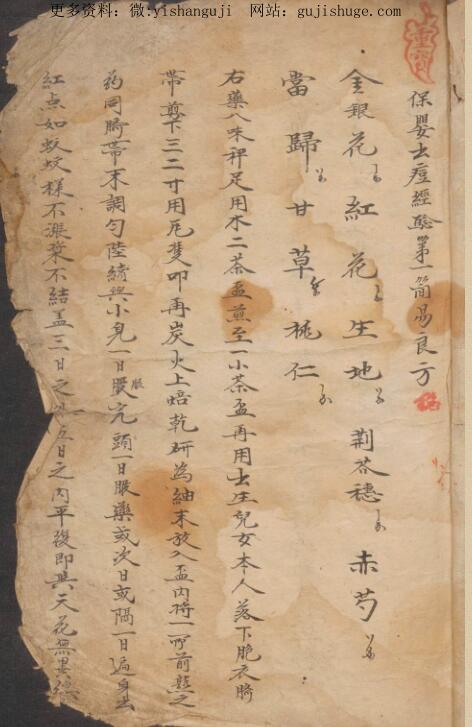 更多资料：微:yishanguji 网站：gujishuge.com
保嬰出痘經驗第一簡易良方
金銀花 紅花 生地 荆芥穗 赤芍
當歸 甘草 桃仁
右藥八味秤足用水二茶盃煎至一小茶盃再用出生兒女本人落下胞衣臍
帶剪下三二寸用瓦雙叩再炭火上焙乾研為細末放入盃內将一 前熬之
药同臍帶末調匀陸續與小兒一日服完頭一日服藥或次日或隔一日遍身出
紅点如蚊 樣不漲浆不結盖三日之 五日之內平復即與天花無異